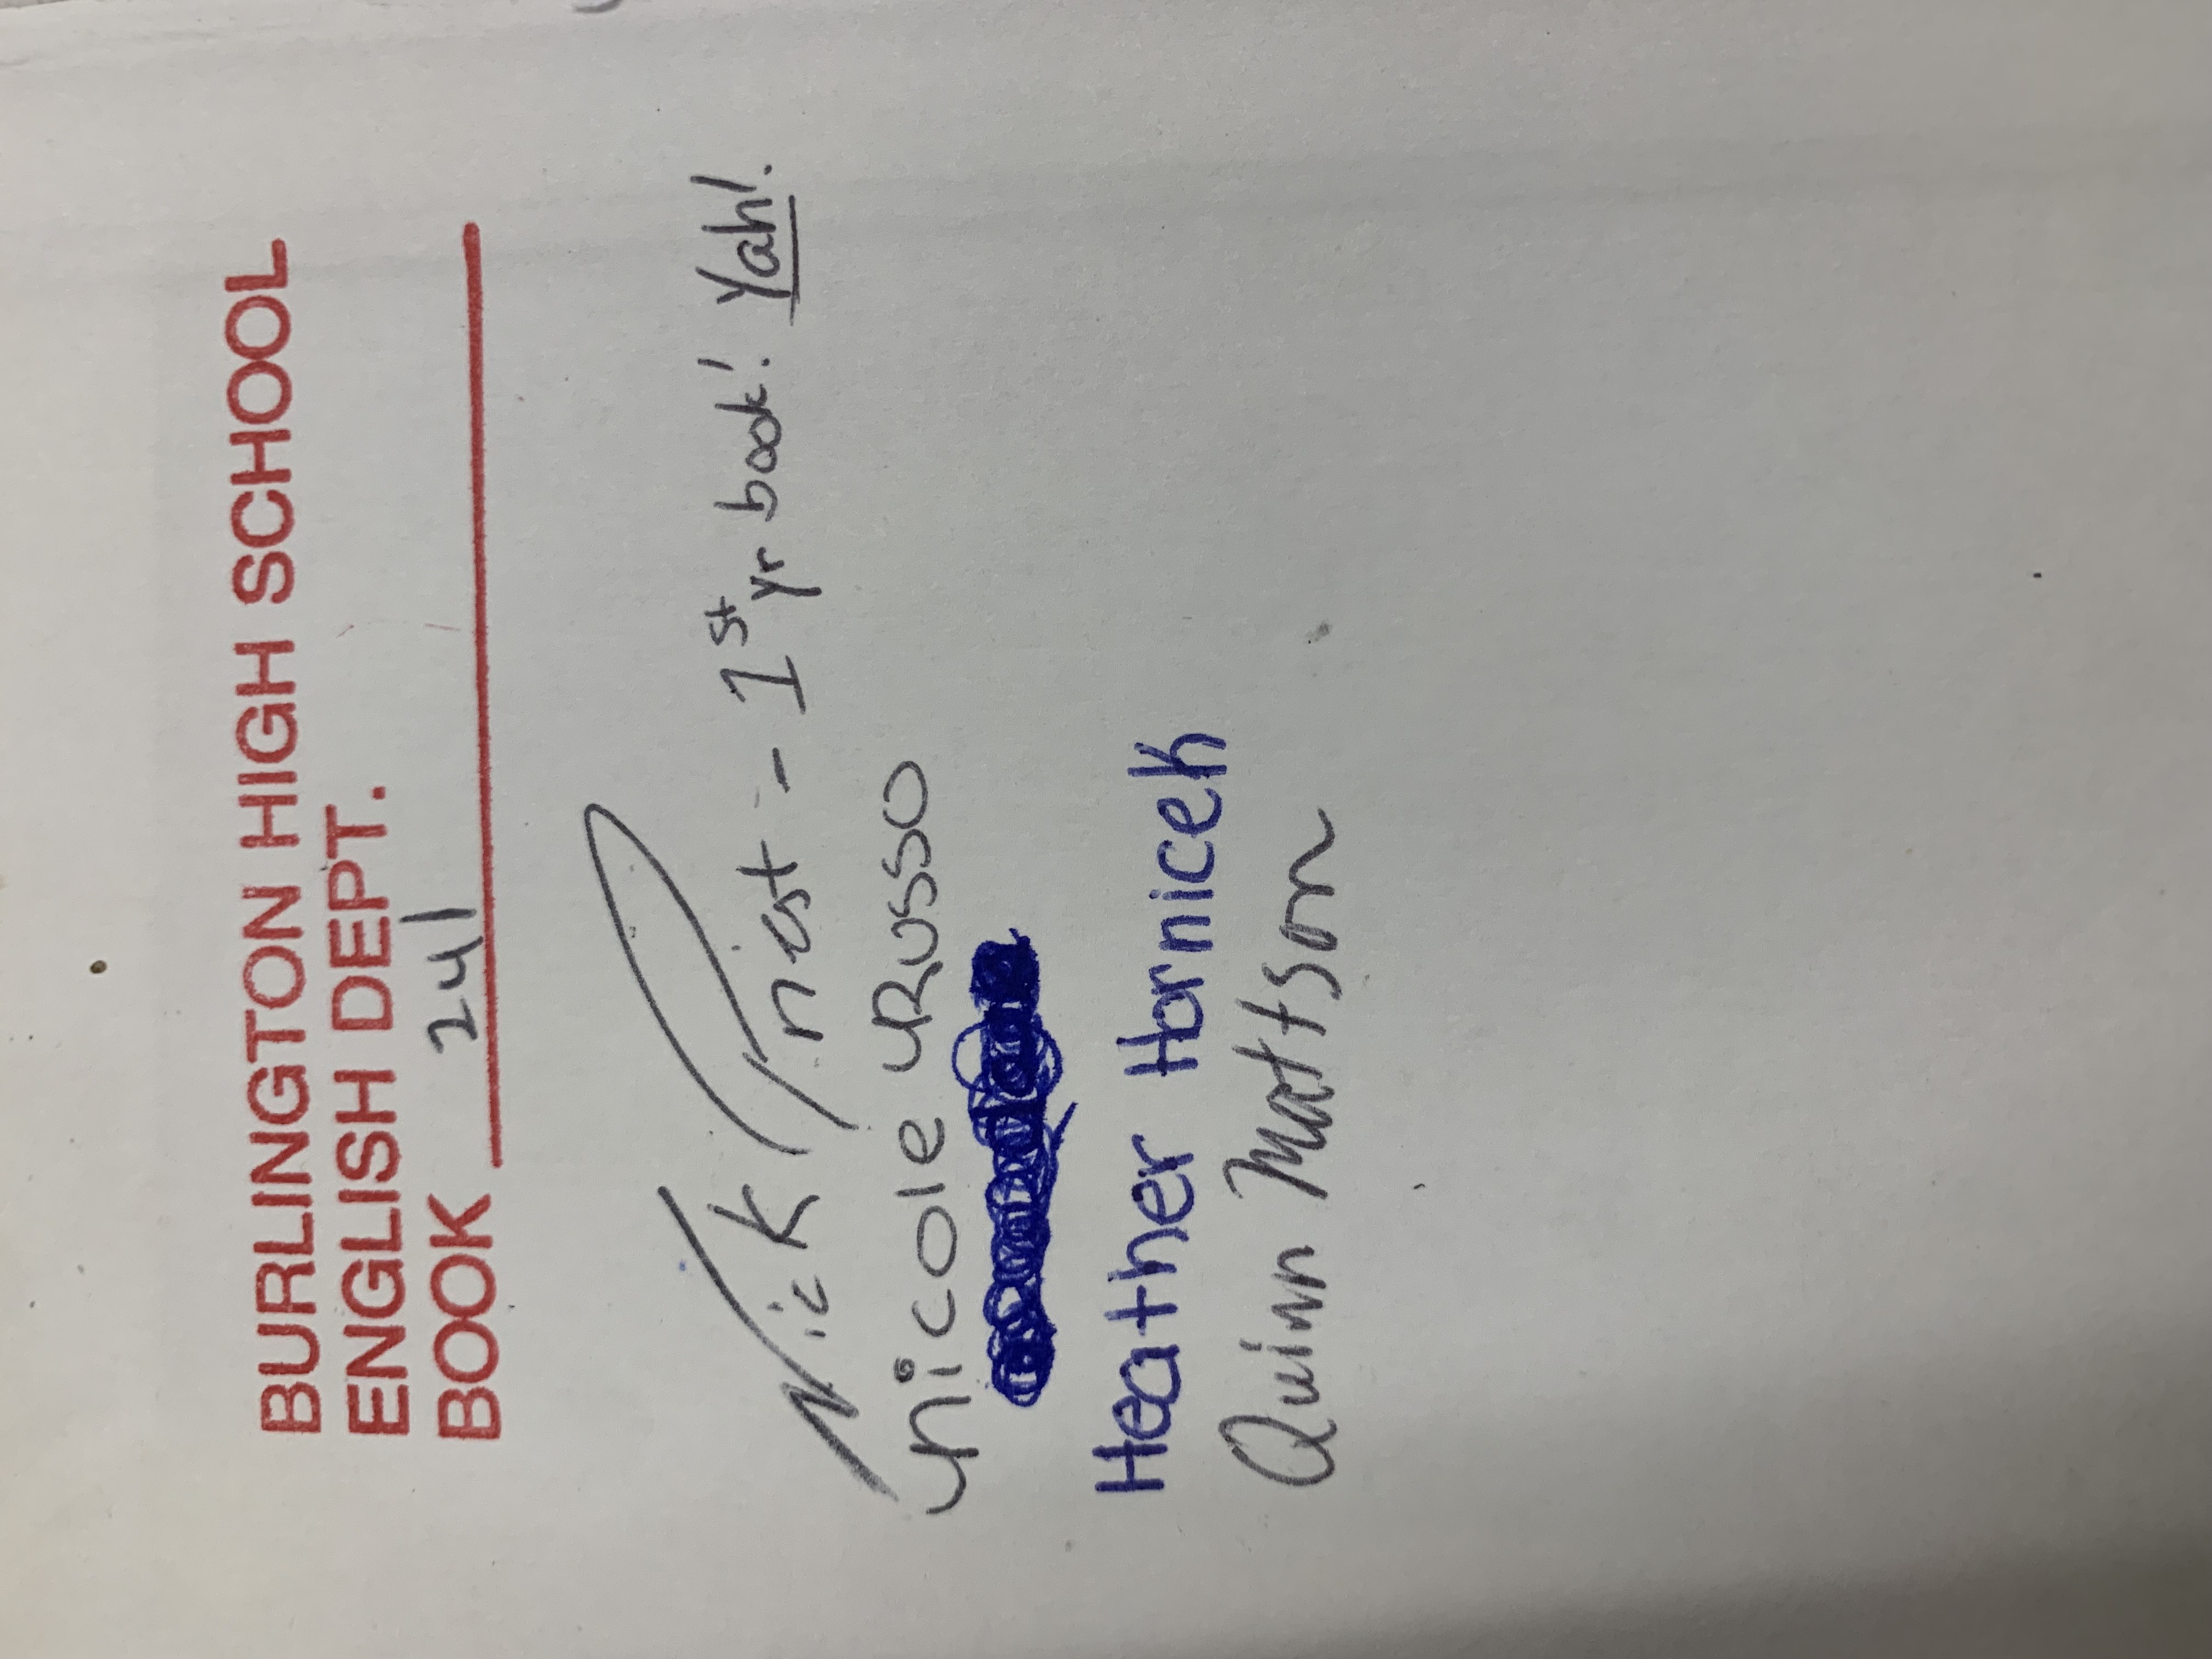 BURLINGTON HIGH SCHOOL
ENGLISH DEPT.
BOOK 241
Nick Priest - 1st yr book! Yah!
Nicole Russo
Heather Hornicek
Quinn Mattson